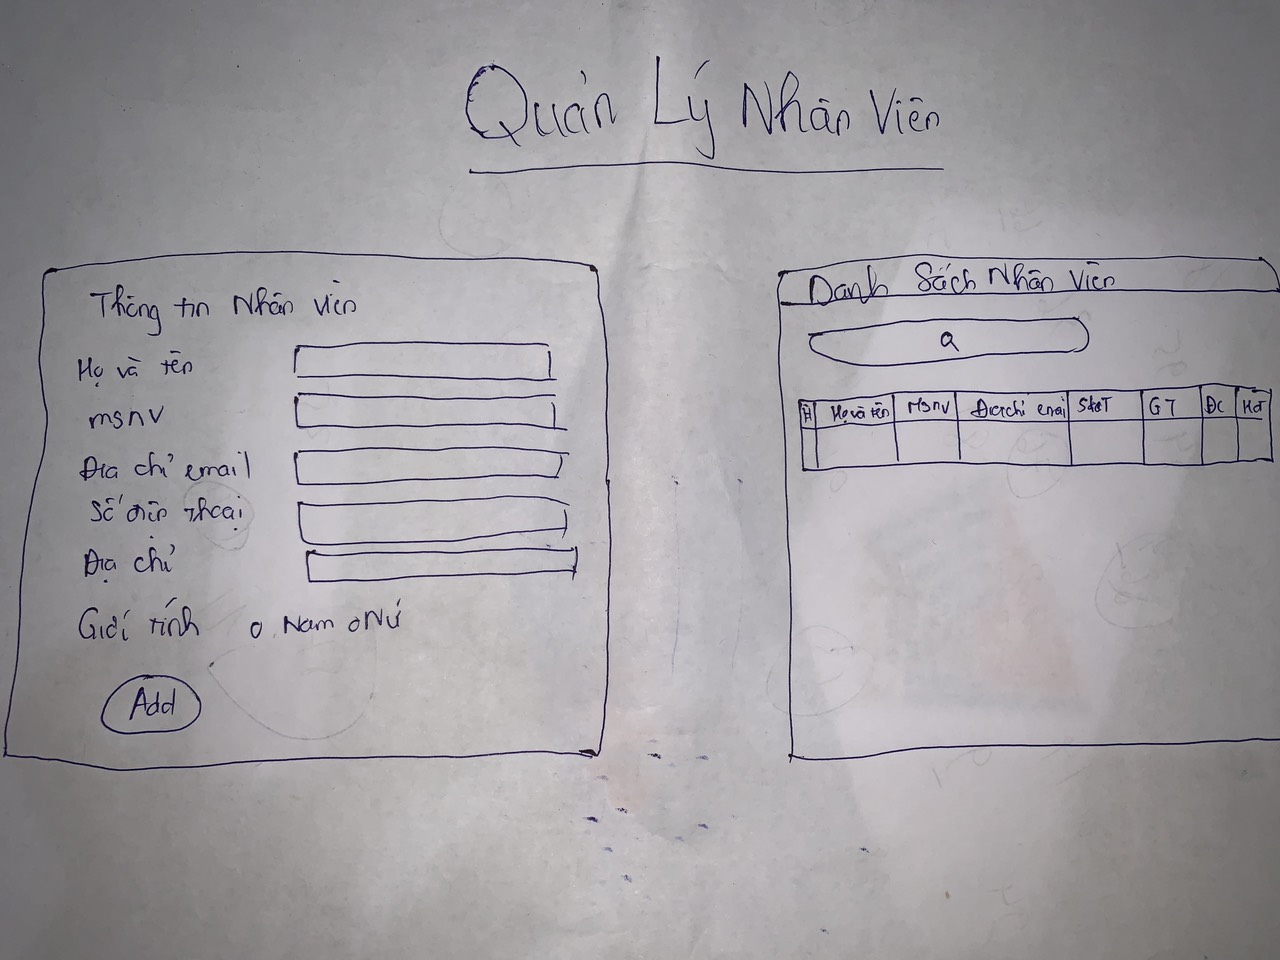 Quản Lý Nhân Viên
Thông tin Nhân viên
Họ và tên
msnv
Địa chỉ email
Số điện thoại
Địa chỉ
Giới tính o Nam o Nữ
Add
Danh Sách Nhân Viên
Họ và tên MSNV Địa chỉ email SĐT GT ĐC